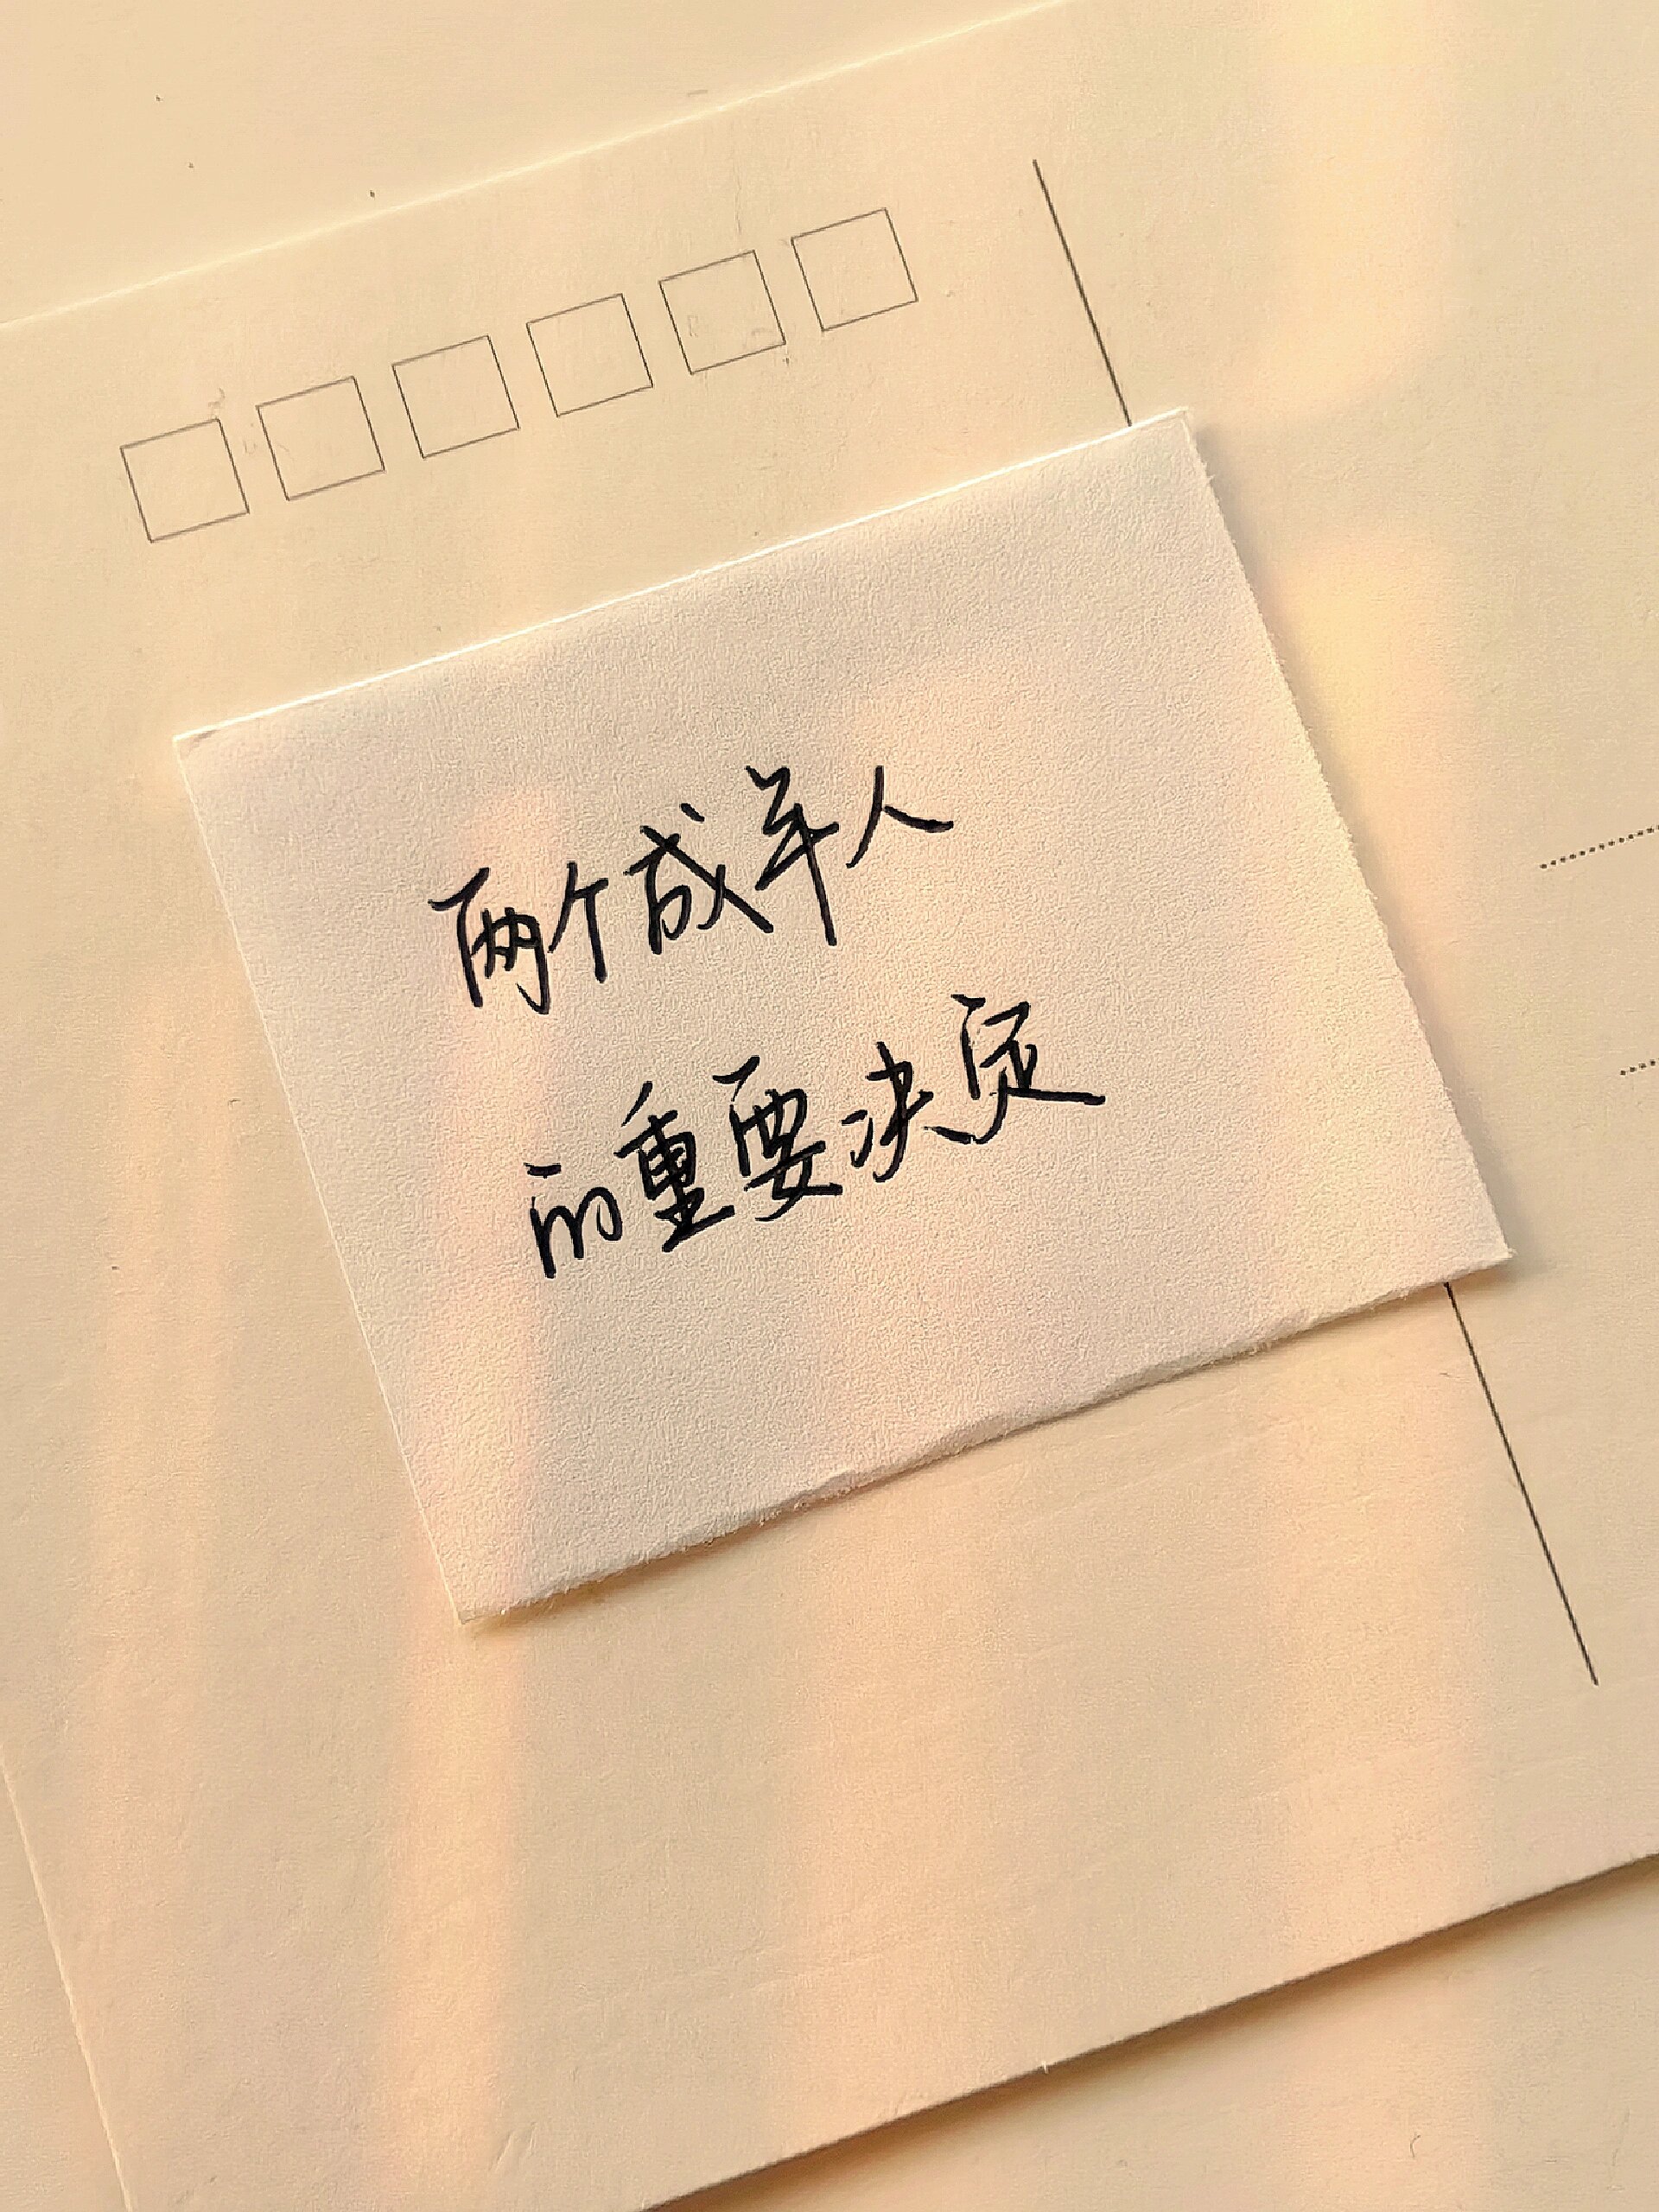 两个成年人
的重要决定